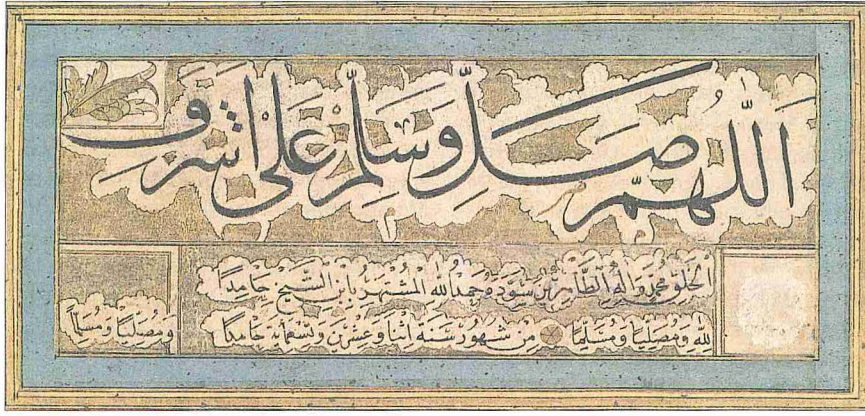 اَللّٰهُمَّ صَلِّ وَسَلِّمْ عَلٰى اَشْرَفِ
الخلق محمد واله الطاهرين سوده حمد الله المشتهر بابن الشيخ حامدا
لله ومصليا ومسلما من شهور سنة اثنا وعشرين وتسعمائة حامدا
ومصليا ومسلما